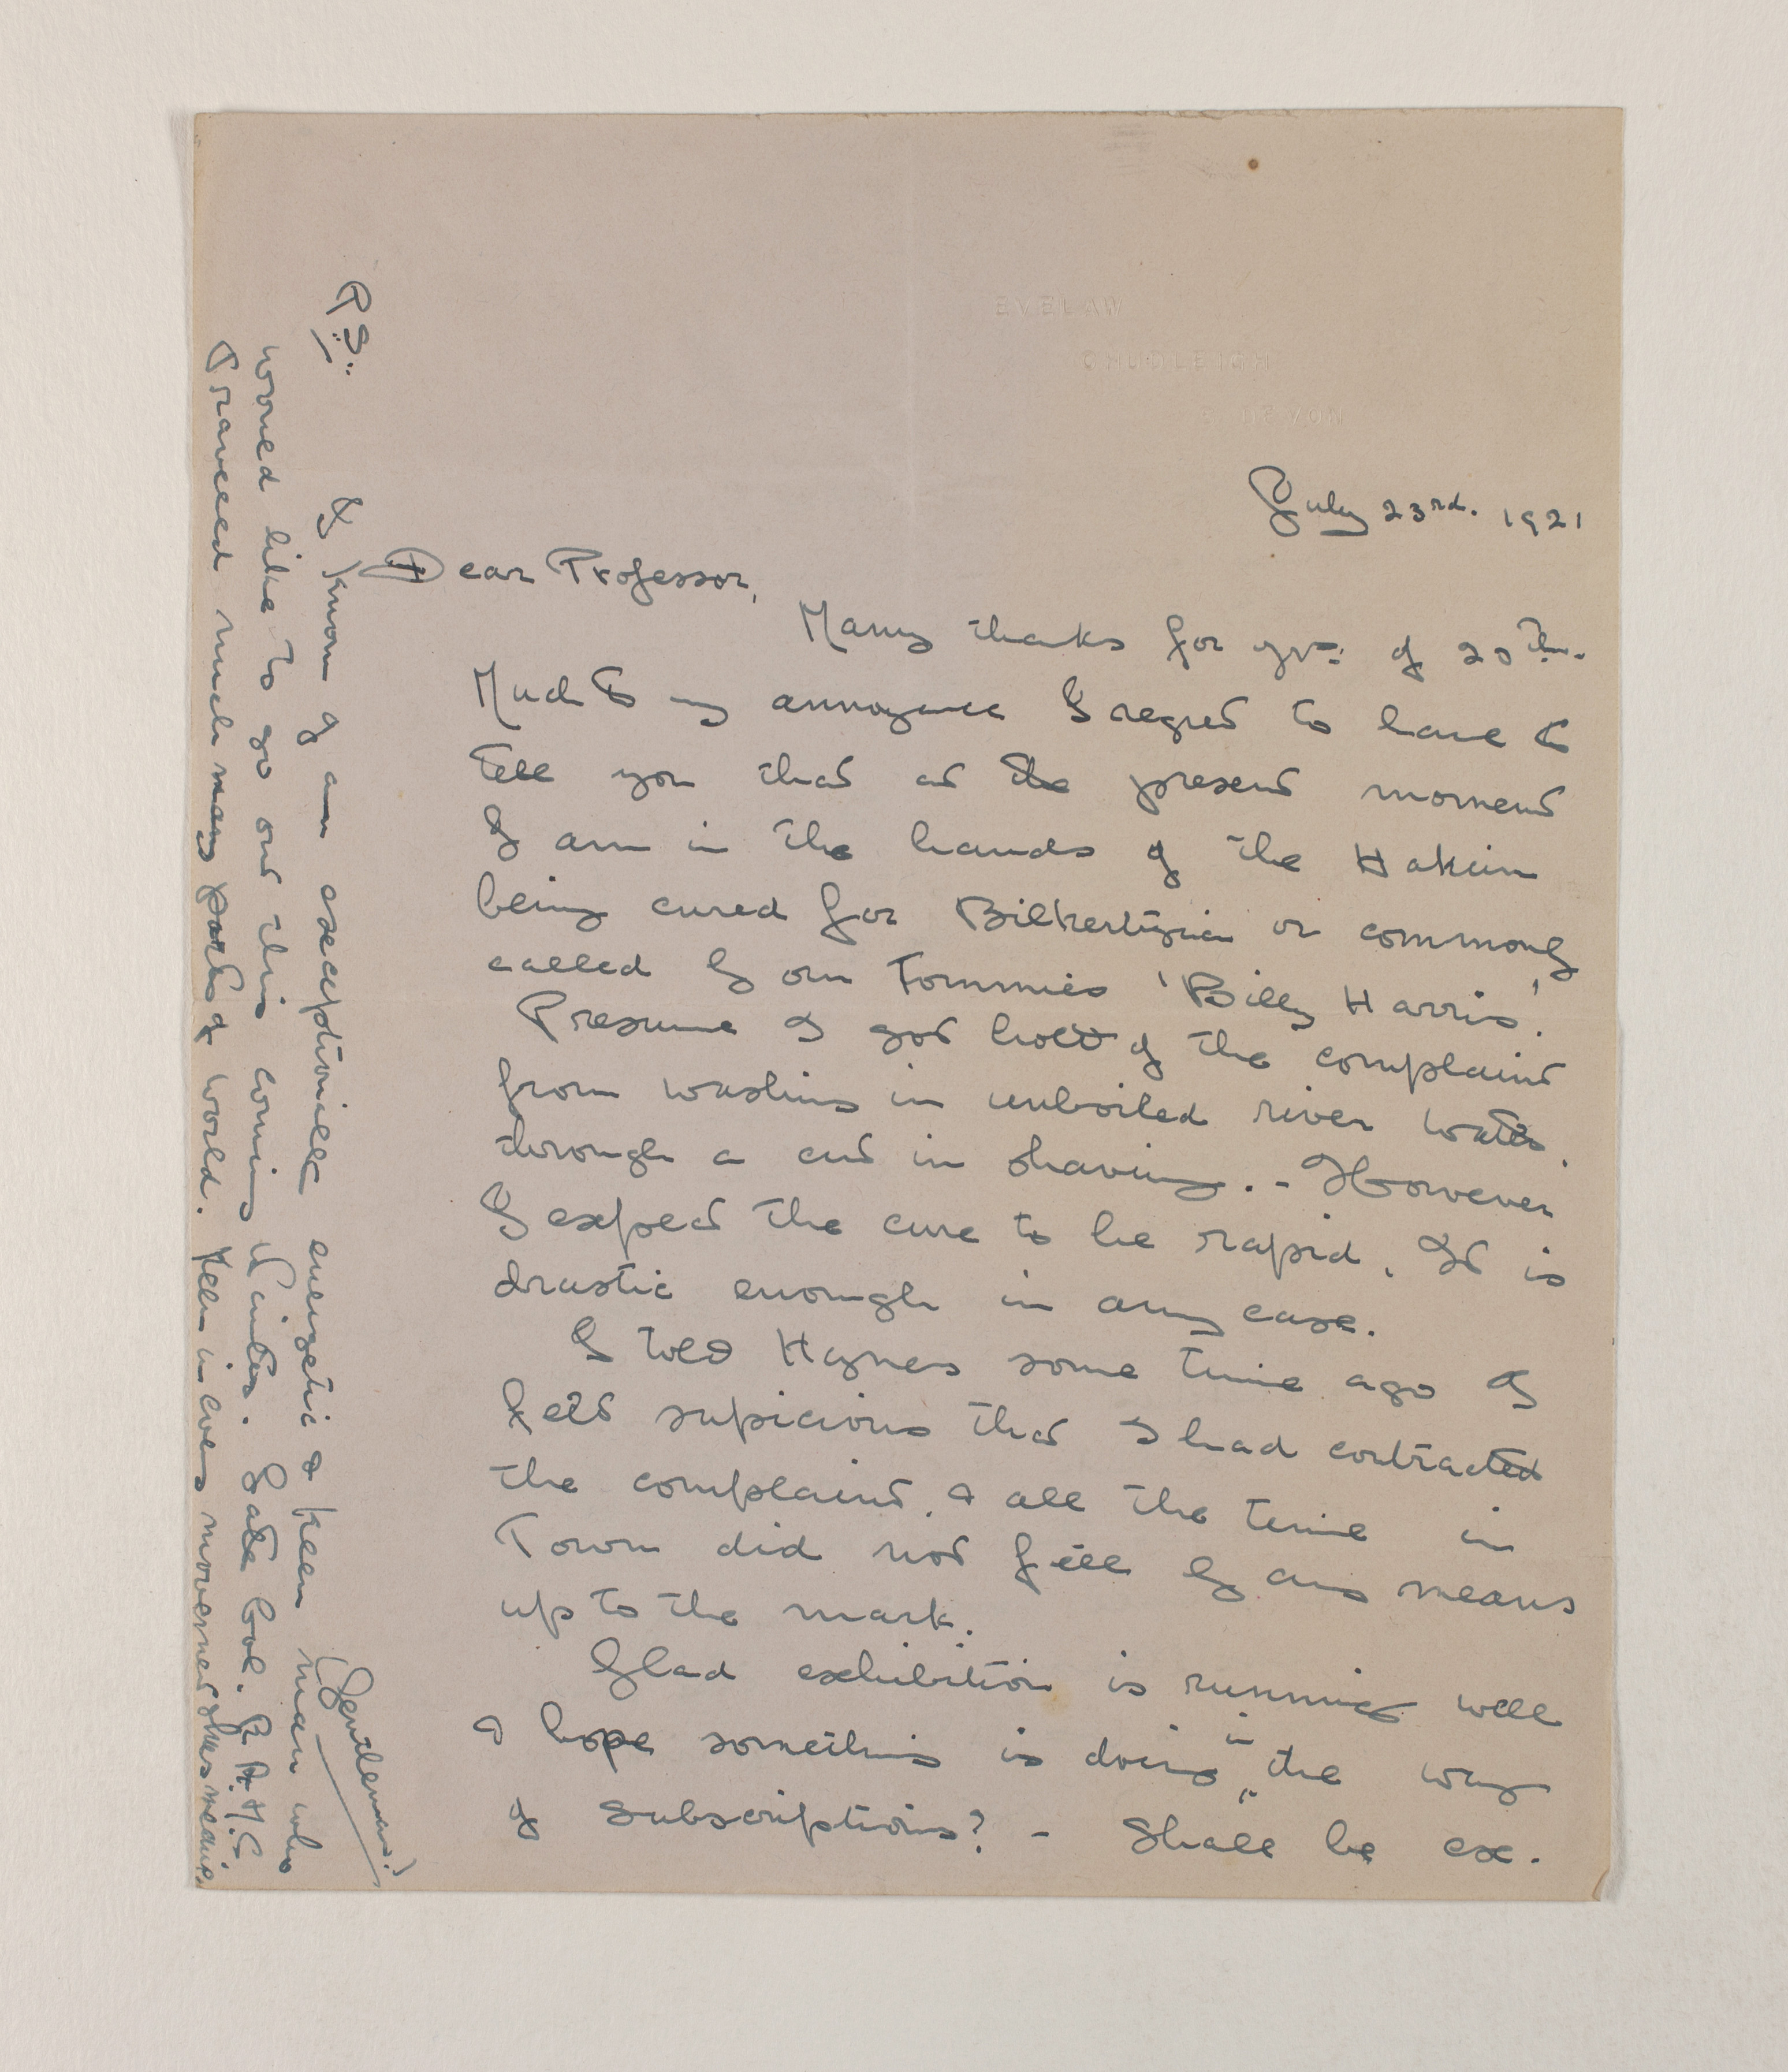 EVELAW
CHUDLEIGH
S. DEVON
July 23rd. 1921
Dear Professor,
Many thanks for yrs: of 20th.
Much to my annoyance I regret to have to
tell you that at the present moment
I am in the hands of the Hakim
being cured for Bilhertizia or commonly
called by our Tommies 'Billy Harris'.
Presume I got hold of the complaint
from washing in unboiled river water
through a cut in shaving. - However
I expect the cure to be rapid. It is
drastic enough in any case.
I told Haynes some time ago I
felt supicious that I had contracted
the complaint, & all the time in
Town did not feel by any means
up to the mark.
Glad exhibition is running well
& hope something is doing in the way
of subscriptions? - Shall be ex.
P.S:
I know of an exceptionall energetic & keen man who
(Gentleman!)
would like to go out this coming Winter. Late Col. R.A.M.C.
Traveled much many parts of world. Keen in lives movement &